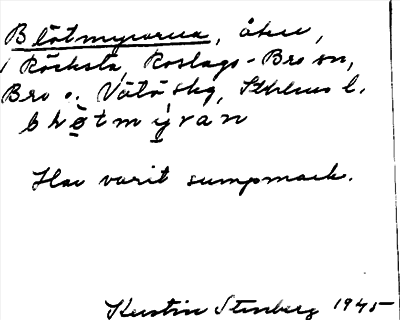 Blötmyrarna, åker,
Röcksta, Roslags-Bro sn,
Bro o. Vätö skg, Sthlms l.
bløtmyran
Har varit sumpmark.
Kerstin Stenberg 1945